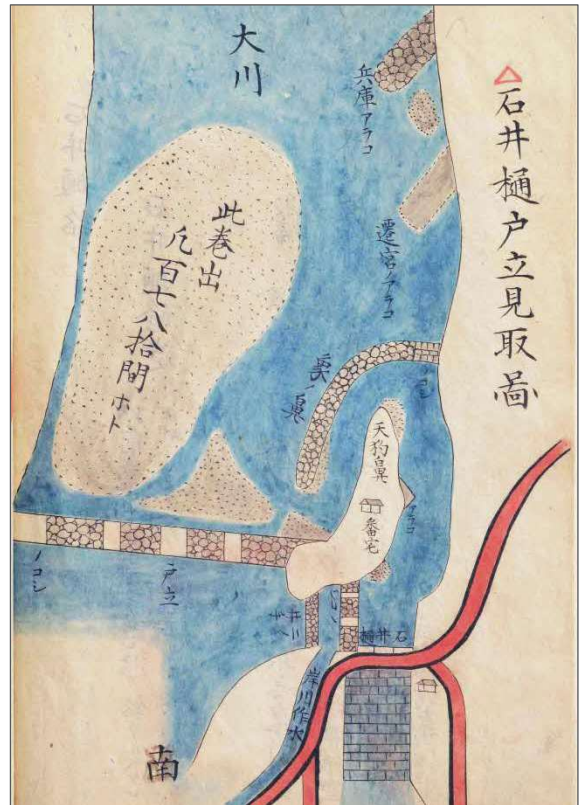 △石井樋戸立見取畄
大川
兵庫アラコ
遷宮ノアラコ
此巻出
凡百七八拾間ホト
象ノ鼻
天狗鼻
番宅
アラコ
ノコシ
戸立
石井樋
岸川作水
南